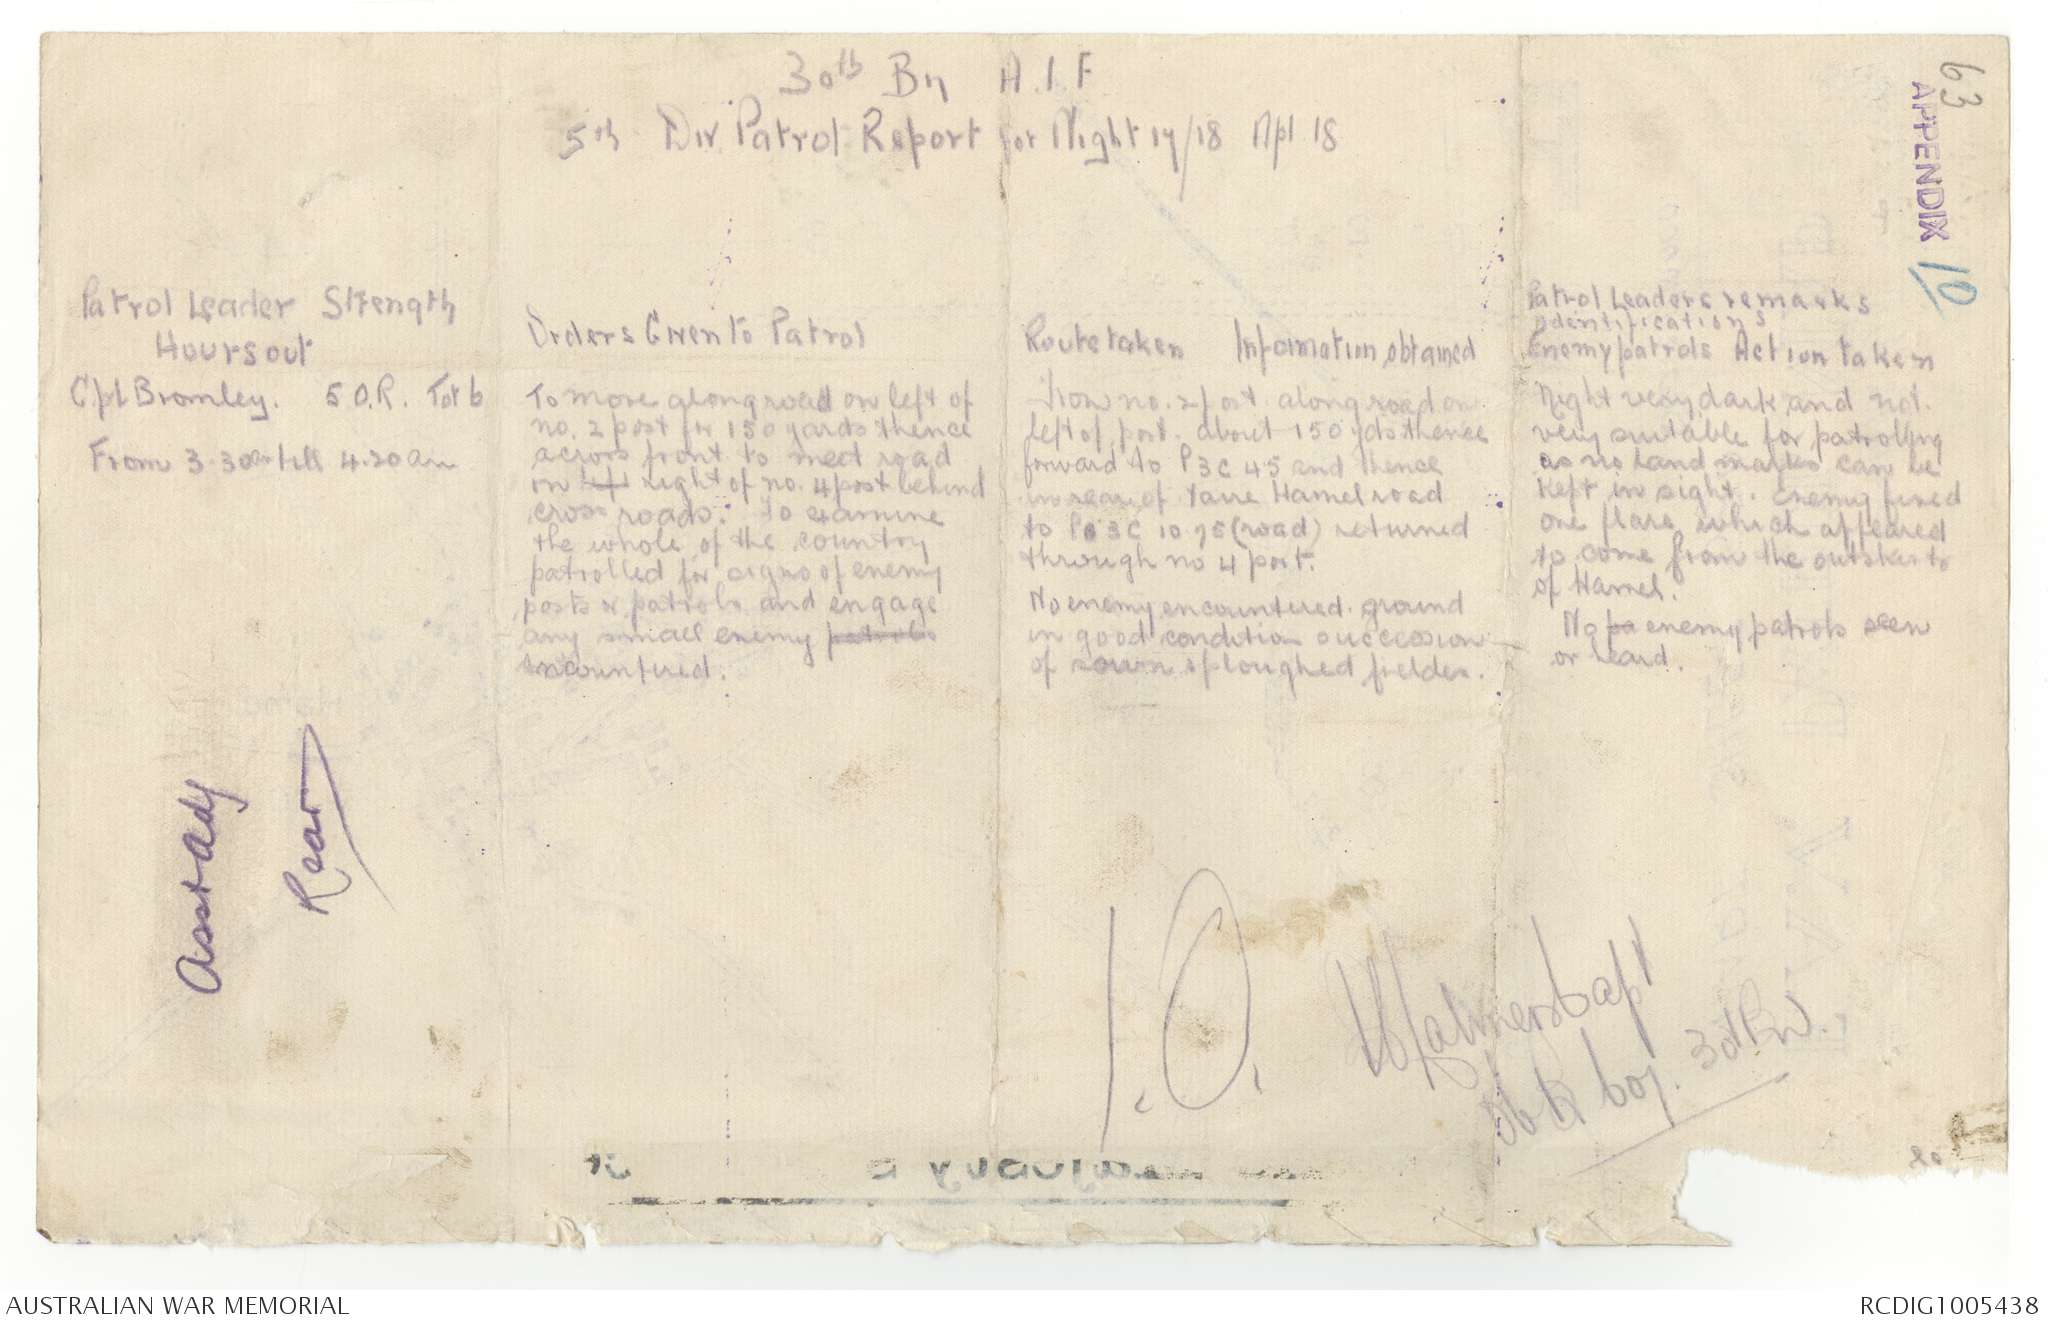 30th Bn A.I.F
5th Div Patrol Report for Night 17/18 Apl 18
63
APPENDIX 10
Patrol Leader Strength
Hours out
Cpl Bromley. 5 O.R. Tot 6
From 3.30am till 4.20am
Orders Given to Patrol
To move along road on left of
no. 2 post for 150 yards thence
across front to meet road
on left right of no. 4 post behind
cross roads. To examine
the whole of the country
patrolled for signs of enemy
posts & patrols and engage
any small enemy patrols
encountered.
Route taken Information obtained
From no. 2 post along road on
left of post. about 150 yds thence
forward to P3C 45 and thence
in rear of Vaire Hamel road
to P3C 10.75 (road) returned
through no 4 post.
No enemy encountered. ground
in good condition succession
of sown & ploughed fields.
Patrol Leaders remarks
Identifications
Enemy patrols Action taken
Night very dark and not
very suitable for patrolling
as no land marks can be
kept in sight. Enemy fired
one flare which appeared
to come from the outskirts
of Hamel.
No pa enemy patrols seen
or heard.
Asst Adj
Rear
I.O.
Capt
Coy. 30th Bn.
AUSTRALIAN WAR MEMORIAL
RCDIG1005438